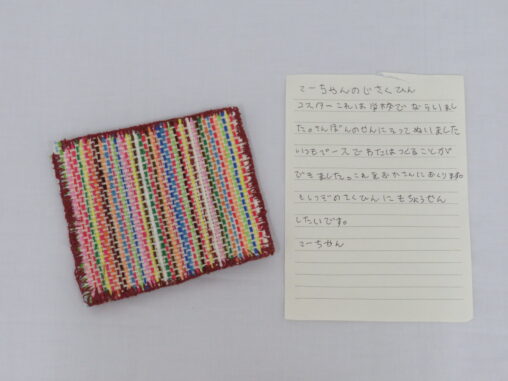 こーちゃんのじさくひん
コスターこれは学校でならいまし
た。さんぼんのせんにそってぬいました
いつもペースでわたはつくることが
できました。これをおかさんにおくります。
もしつぎのさくひんにもちょうせん
したいです。
こーちゃん